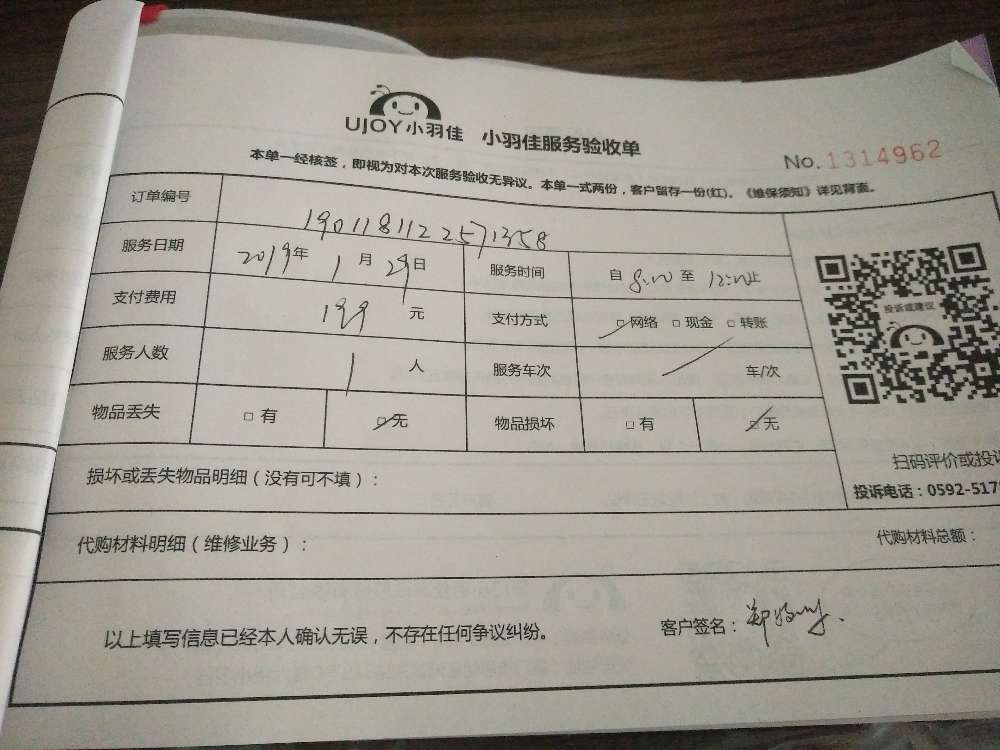 UJOY小羽佳 小羽佳服务验收单
No.1314962
本单一经核签,即视为对本次服务验收无异议。本单一式两份,客户留存一份(红)。《维保须知》详见背面。
订单编号 1901181122571358
服务日期 2019年 1月 29日 服务时间 自 8:00 至 12:00止
支付费用 199 元 支付方式 □网络 □现金 □转账
服务人数 1 人 服务车次 车/次
物品丢失 □有 □无 物品损坏 □有 □无
投诉或建议
扫码评价或投
投诉电话:0592-517
损坏或丢失物品明细(没有可不填):
代购材料明细(维修业务): 代购材料总额:
以上填写信息已经本人确认无误,不存在任何争议纠纷。 客户签名:郑